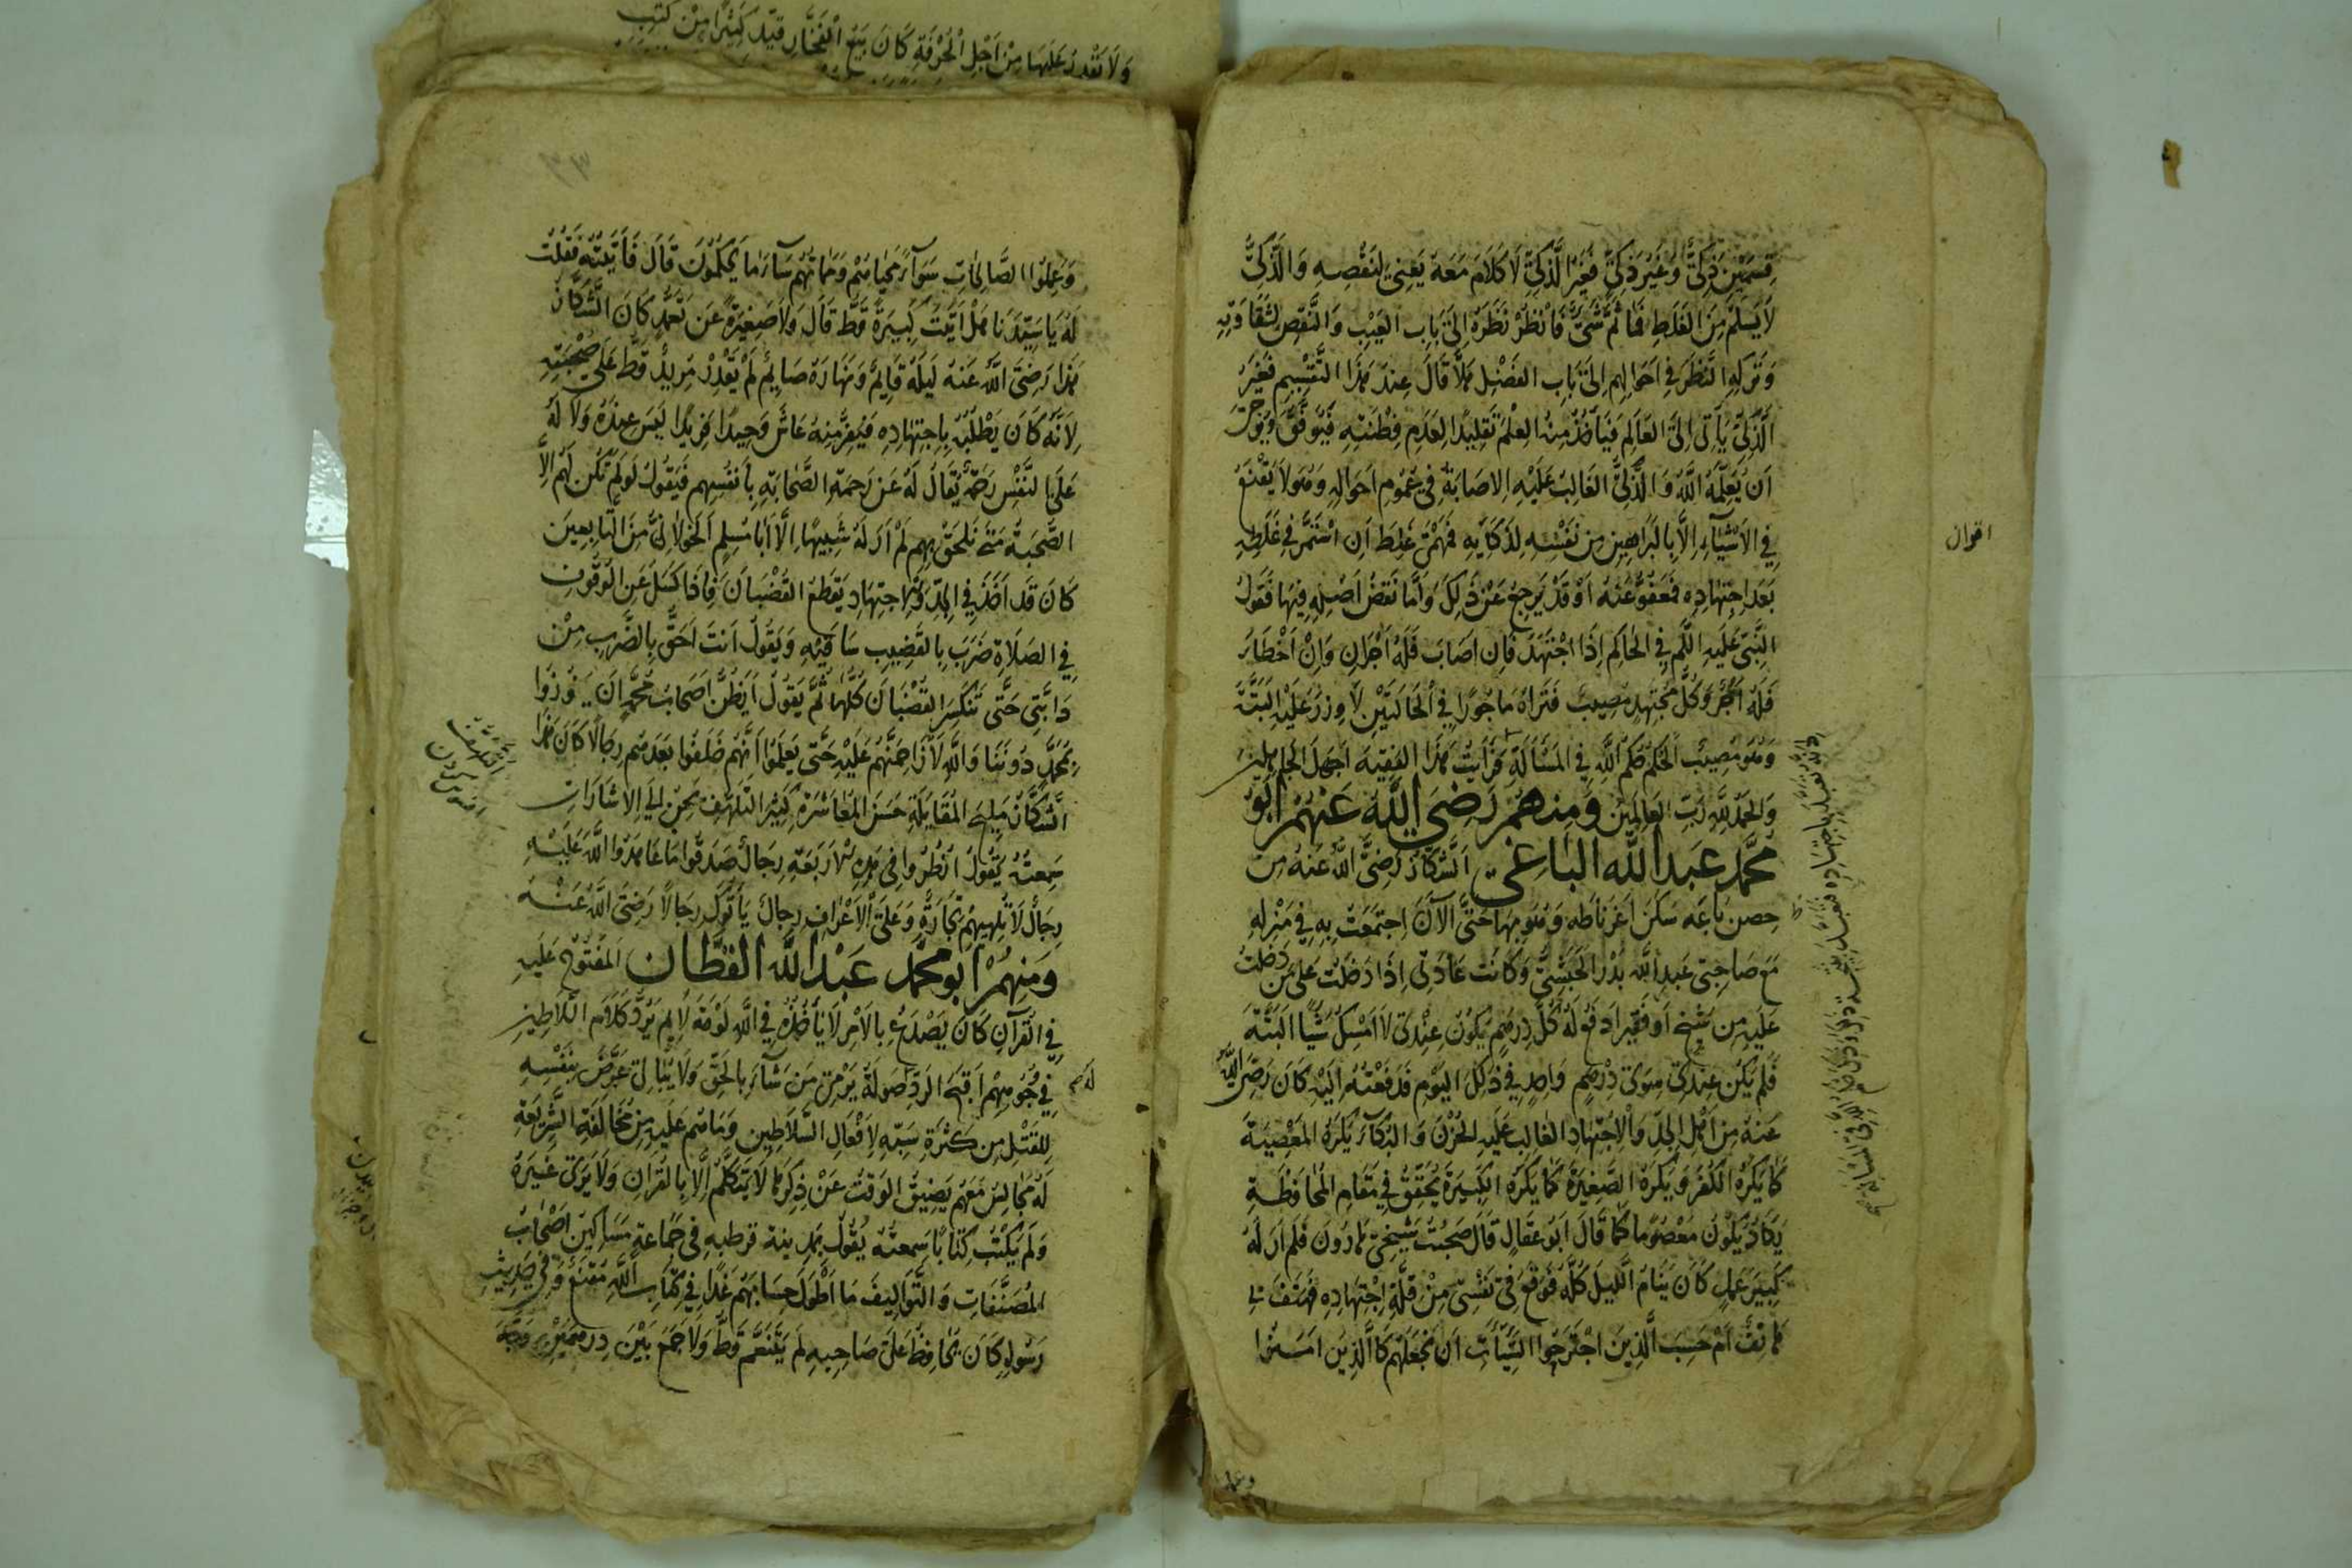 قِسمَيْنِ ذَكِيٌّ وَغَيْرُ ذَكِيٍّ فَغَيْرُ الذَّكِيِّ لَا كَلَامَ مَعَهُ يَعْنِي لِنَقْصِهِ وَالذَّكِيُّ
لَا يَسْلَمُ مِنَ الغَلَطِ فَمَا ثَمَّ شَيْءٌ فَانْظُرْ نَظَرَهُ اِلَى بَابِ العَيْبِ وَالنَّقْصِ لِشَقَاوَتِهِ
وَتَرْكِهِ النَّظَرَ فِي اَحْوَالِهِم اِلَى بَابِ الفَضْلِ هَلَّا قَالَ عِنْدَ هَذَا التَّقْسِيمِ فَغَيْرُ
الذَّكِيِّ يَأتِي اِلَى العَالِمِ فَيَأخُذُ مِنْهُ العِلْمَ تَقْلِيدًا لِعَدَمِ فِطْنَتِهِ فَيُوَفَّقُ وَيُوجَرُ
اَنْ يُعَلِّمَهُ اللّٰهُ وَالذَّكِيُّ الغَالِبُ عَلَيْهِ الاصَابَةُ فِي عُمُومِ اَحْوَالِهِ وَهُوَ لَا يَقْنَعُ
فِي الاَشْيَاءِ اِلَّا بِالبَرَاهِينِ مِن نَفْسِهِ لِذَكَائِهِ فَمَهْمَى غَلِطَ اَنِ اسْتَمَرَّ فِي غَلَطِهِ
بَعْدَ اجْتِهَادِهِ فَمَعْفُوٌّ عَنْهُ اَوْ قَدْ يَرجِعُ عَنْ ذَلِكَ وَاَمَّا نَقْضُ اَصْلِهِ فِيهَا فَقَوْلُ
النَّبِيِّ عَلَيْهِ السَّلَم فِي الحَاكِمِ اِذَا اجْتَهَدَ فَاِن اصَابَ فَلَهُ اَجْرَانِ وَاِنْ اَخْطَاءَ
فَلَهُ اَجْرٌ وَكُلُّ مُجْتَهِدٍ مُصِيبٌ فَتَرَاهُ مَاجُورًا فِي الحَالَتَيْنِ لَا وِزْرَ عَلَيْهِ البَتَّةَ
وَهُوَ مُصِيبٌ الحُكْمُ حُكْمُ اللّٰهِ فِي المَسْأَلَةِ فَرَأَيْتُ هَذَا الفَقِيهَ اَجْهَلَ الجَاهِلِينَ
وَالحَمْدُ لِلّٰهِ رَبِّ العَالَمِينَ وَمِنهُمْ رَضِيَ اللّٰهُ عَنْهُمْ اَبُو
مُحَمَّد عَبْدُ اللّٰه البَاغِي اَلشَّكَّازُ رَضِيَ اللّٰهُ عَنْهُ مِن
حِصنِ بَاغَه سَكَنَ اَغَرْنَاطَه وَهُوَ بِهَا حَتَّى الآنَ اِجتَمَعْتُ بِهِ فِي مَنْزِلِهِ
مَعَ صَاحِبِي عَبدِ اللّٰه بَدْر الحَبَشِيِّ وَكَانَتْ عَادَتِي اِذَا دَخَلْتُ عَلَى مَن دَخَلْتُ
عَلَيْهِ مِن شَيْخٍ اَو فَقِيرٍ اَدفَعُ لَهُ كُلَّ دِرهَمٍ يَكُونُ عِنْدِي لَا اَمْسِكُ شَيْئًا البَتَّةَ
فَلَم يَكُنْ عِنْدِي سِوَى دِرْهَمٍ وَاحِدٍ فِي ذَلِكَ اليَوْمِ فَدَفَعْتُهُ اِلَيْهِ كَانَ رَضِيَ اللّٰهُ
عَنْهُ مِن اَهْلِ الجِدِّ وَالاِجْتِهَادِ الغَالِبُ عَلَيْهِ الحُزْنُ وَالبُكَاءُ يَكْرَهُ المَعْصِيَةَ
كَمَا يَكْرَهُ الكُفْرَ وَيَكْرَهُ الصَّغِيرَةَ كَمَا يَكْرَهُ الكَبِيرَةَ يُحَقِّقُ فِي مَقَامِ المُحَافَظَةِ
يَكَادُ يَكُونُ مَعْصُومًا كَمَا قَالَ اَبُو عَقَالٍ قَالَ صَحِبْتُ شَيْخِي هَارُونَ فَلَم اَرَ لَهُ
كَبِيرَ عَمَلٍ كَانَ يَنَامُ اللَّيلَ كُلَّهُ فَوَقَعَ فِي نَفْسِي مِنْ قِلَّةِ اِجْتِهَادِهِ فَهَتَفَ بِي
هَاتِفٌ اَمْ حَسِبَ الَّذِينَ اجْتَرَحُوا السَّيِّآتِ اَن نَجْعَلَهُم كَالَّذِينَ امَنُوا
وعملوا
اقوال
وَعَمِلُوا الصَّالِحَاتِ سَوَآءً مَحْيَاهُمْ وَمَمَاتُهُمْ سَآءَ مَا يَحْكُمُونَ قَالَ فَأَتَيْتُهُ فَقُلْتُ
لَهُ يَا سَيِّدَنَا هَلْ اَتَيْتَ كَبِيرَةً قَطُّ قَالَ وَلَا صَغِيرَةً عَن تَعَمُّدٍ كَانَ الشَّكَّازُ
هَذَا رَضِيَ اللّٰهُ عَنْهُ لَيْلَهُ قَايِمٌ وَنَهَارَهُ صَايِمٌ لَمْ يَقْدِرْ مُرِيدٌ قَطُّ عَلَى صُحْبَتِهِ
لِاَنَّهُ كَانَ يَطْلُبُهُ بِاجْتِهَادِهِ فَيَفِرُّ مِنْهُ عَاشَ وَحِيدًا فَرِيدًا لَيْسَ عِنْدَهُ وَلَا لَهُ
عَلَى النَّفْسِ رَحْمَةٌ يُقَالُ لَهُ عَن رَحْمَةِ الصَّحَابَةِ بِأَنفُسِهِم فَيَقُولُ لَو لَم تَكُن لَهُم اِلَّا
الصُّحْبَةُ مَتَى نَلْحَقُ بِهِم لَمْ اَرَ لَهُ شَبِيهًا اِلَّا اَبَا مُسْلِمٍ الخَوْلَانِيَّ مِنَ التَّابِعِينَ
كَانَ قَد اَخَذَ فِي الجِدِّ وَالاجتِهَادِ يَقْطَعُ القُضْبَانَ فَاِذَا كَسَلَ عَنِ الوُقُوفِ
فِي الصَّلَاةِ ضَرَبَ بِالقَضِيبِ سَاقَيْهِ وَيَقُولُ اَنتَ اَحَقُّ بِالضَّرْبِ مِنْ
دَابَّتِي حَتَّى تَنْكَسِرَ القُضْبَانُ كُلُّهَا ثُمَّ يَقُولُ اَيَظُنُّ اَصحَابُ مُحَمَّدٍ اَن يَفُوزُوا
بِمُحَمَّدٍ دُونَنَا وَاللّٰهِ لَاُزَاحِمَنَّهُمْ عَلَيْهِ حَتَّى يَعْلَمُوا اَنَّهُم خَلَفُوا بَعْدَهُم رِجَالًا كَانَ هَذَا
الشَّكَّازُ مَلِيحَ المُقَابَلَةِ حَسَنَ المُعَاشَرَةِ كَثِيرَ التَّلَهُّفِ يَحِنُّ اِلَى الاِشَارَاتِ
سَمِعتُهُ يَقُولُ انْظُرُوا فِي هَذِهِ الاَربَعَةِ رِجَالٌ صَدَقُوا مَا عَاهَدُوا اللّٰهَ عَلَيْهِ
رِجَالٌ لَا تُلْهِيهِمْ تِجَارَةٌ وَعَلَى الاَعْرَافِ رِجَالٌ يَأتُوكَ رِجَالًا رَضِيَ اللّٰهُ عَنْهُ
وَمِنهُمْ اَبو مُحَمَّد عَبْدُ اللّٰه القَطَّان المَفْتُوحُ عَلَيْهِ
فِي القُرآنِ كَانَ يَصْدَعُ بِالاَمْرِ لَا يَأخُذُهُ فِي اللّٰهِ لَوْمَةُ لَايِمٍ يَرُدُّ كَلَامَ السَّلَاطِينِ
فِي وُجُوهِهِمْ اَقبَحَ الرَدِّ لَهُ صَولَةٌ يَرْمِي مَن شَآءَ بِالحَقِّ وَلَا يُبَالِي عَرَّضَ بِنَفْسِهِ
لِلقَتْلِ مِن كَثْرَةِ سَبِّهِ لِاَفْعَالِ السَّلَاطِينِ وَمَا هُم عَلَيْهِ مِن مُخَالَفَةِ الشَّرِيعَةِ
لَهُ مَجَالِسُ مَعَهُم يَضِيقُ الوَقْتُ عَنْ ذِكْرِهَا لَا يَتَكَلَّمُ اِلَّا بِالقُرانِ وَلَا يَرَى غَيْرَهُ
وَلَم يَكْتُبْ كِتَابًا سَمِعتُهُ يَقُولُ بِمَدِينَة قرطبه فِي جَمَاعَةٍ مَسَاكِينُ اَصْحَابُ
المُصَنَّفَاتِ وَالتَّوَالِيفِ مَا اَطْوَلَ حِسَابَهُم غَدًا فِي كِتَابِ اللّٰهِ مَقْنَعٌ وَفِي حَدِيثِ
رَسُولِهِ كَانَ يُحَافِظُ عَلَى صَاحِبِهِ لَم يَتَنَعَّمْ قَطُّ وَلَا جَمَعَ بَيْنَ دِرهَمَيْنِ
وَلَا تَقْدِرُ عَلَيهَا مِنْ اَجْلِ الحُرْفَةِ كَانَ يَبِيعُ الفَخَّارَ قَيَّدَ كَثِيرًا مِنْ كُتُبِ